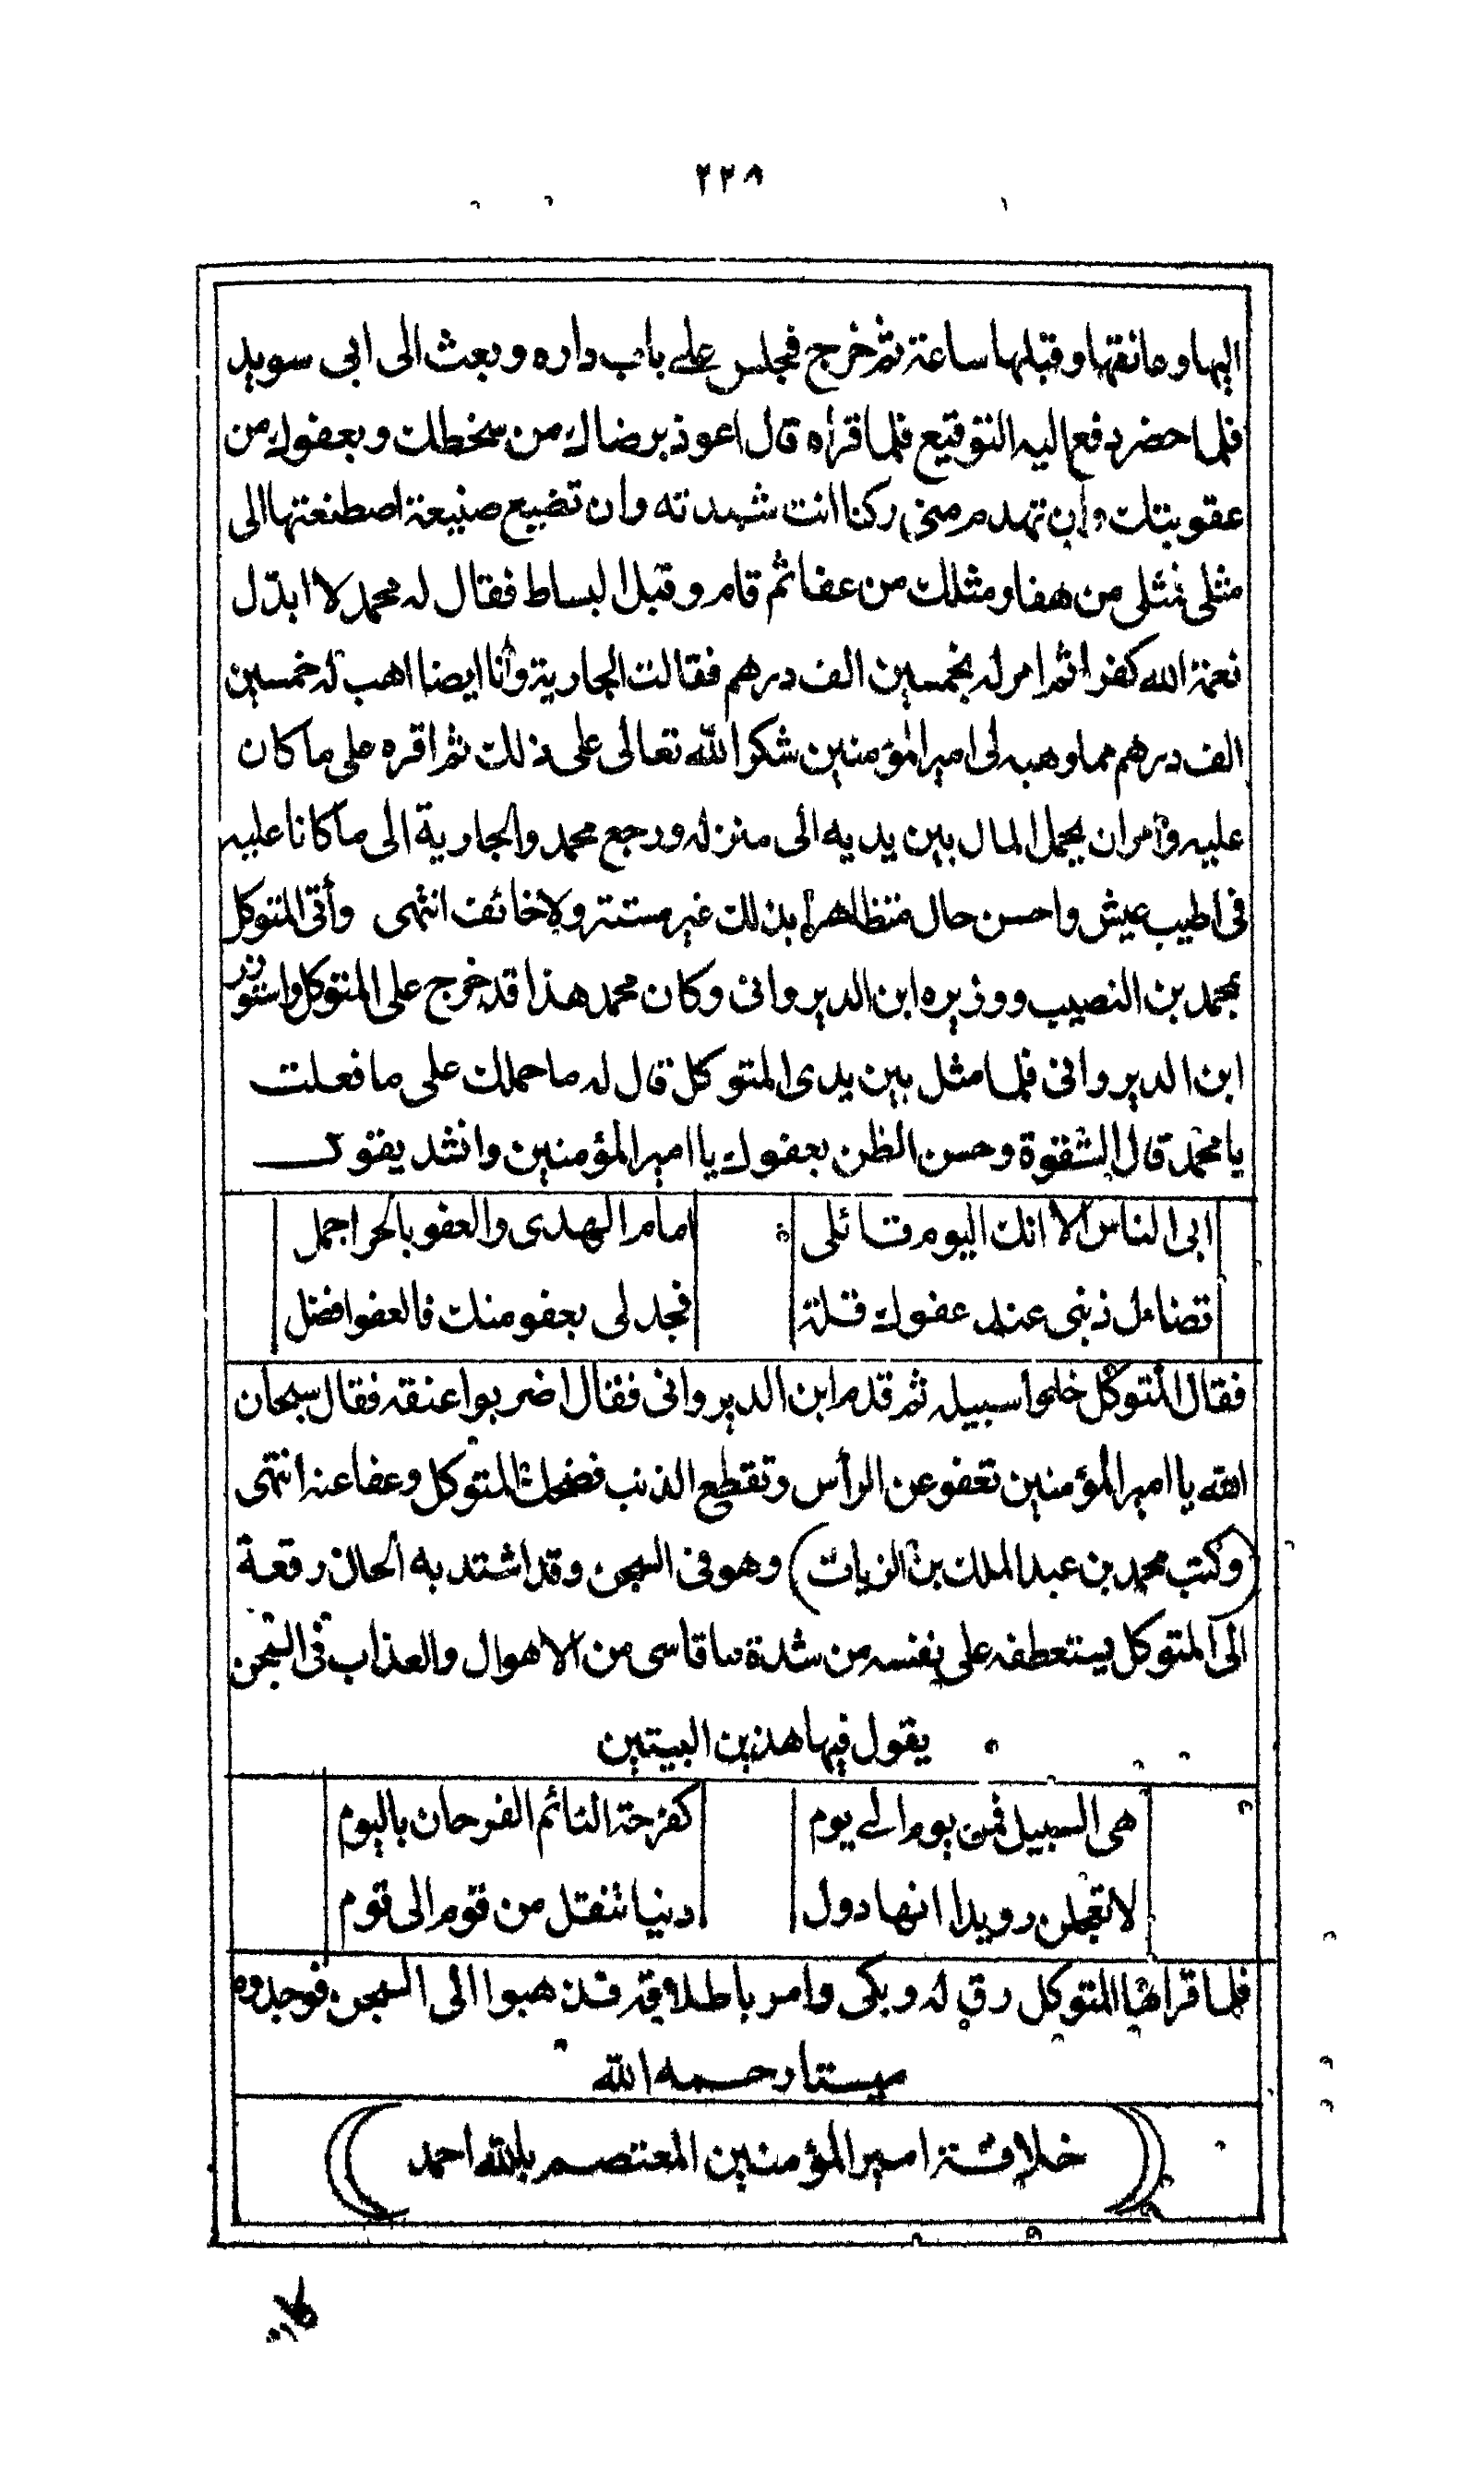 ٢٢٨
اليها وعانقها وقبلها ساعة ثم خرج فجلس على باب داره وبعث الى ابى سويد
فلما حضر دفع اليه التوقيع فلما قراه قال اعوذ برضاك من سخطك وبعفوك من
عقوبتك وان تهدم منى ركنا انت شيدته وان تضيع صنيعة اصطنعتها الى
مثلى فمثلى من هفا ومثلك من عفا ثم قام وقبل البساط فقال له محمد لا ابدّل
نعمة الله كفرا ثم امر له بخمسين الف درهم فقالت الجارية وأنا ايضا اهب له خمسين
الف درهم مما وهبه لى امير المؤمنين شكرا لله تعالى على ذلك ثم اقره على ما كان
عليه وأمر ان يحمل المال بين يديه الى منزله ورجع محمد والجارية الى ما كانا عليه
فى اطيب عيش واحسن حال متظاهرا بذلك غير مستتر ولا خائف انتهى وأتى المتوكل
بمحمد بن النصيب ووزيره ابن الديروانى وكان محمد هذا قد خرج على المتوكل واستوزر
ابن الديروانى فلما مثل بين يدى المتوكل قال له ما حملك على ما فعلت
يا محمد قال الشقوة وحسن الظن بعفوك يا امير المؤمنين وانشد يقول
ابى الناس الا انك اليوم قاتلى امام الهدى والعفو بالحر اجمل
تضاءل ذنبى عند عفوك قلة فجد لى بعفو منك فالعفو افضل
فقال المتوكل خلوا سبيله ثم قدم ابن الديروانى فقال اضربوا عنقه فقال سبحان
الله يا امير المؤمنين تعفو عن الرأس وتقطع الذنب فضحك المتوكل وعفا عنه انتهى
(وكتب محمد بن عبد الملك بن الزيات) وهو فى السجن وقد اشتد به الحال رقعة
الى المتوكل يستعطفه على نفسه من شدة ما قاسى من الاهوال والعذاب فى السجن
يقول فيها هذين البيتين
هى السبيل فمن يوم الى يوم كفرحة النائم الفرحان باليوم
لا تعجلن رويدا انها دول دنيا تنقل من قوم الى قوم
فلما قراها المتوكل رق له وبكى وامر باطلاقه فذهبوا الى السجن فوجدوه
ميتا رحمه الله
((خلافة امير المؤمنين المعتصم بالله احمد))